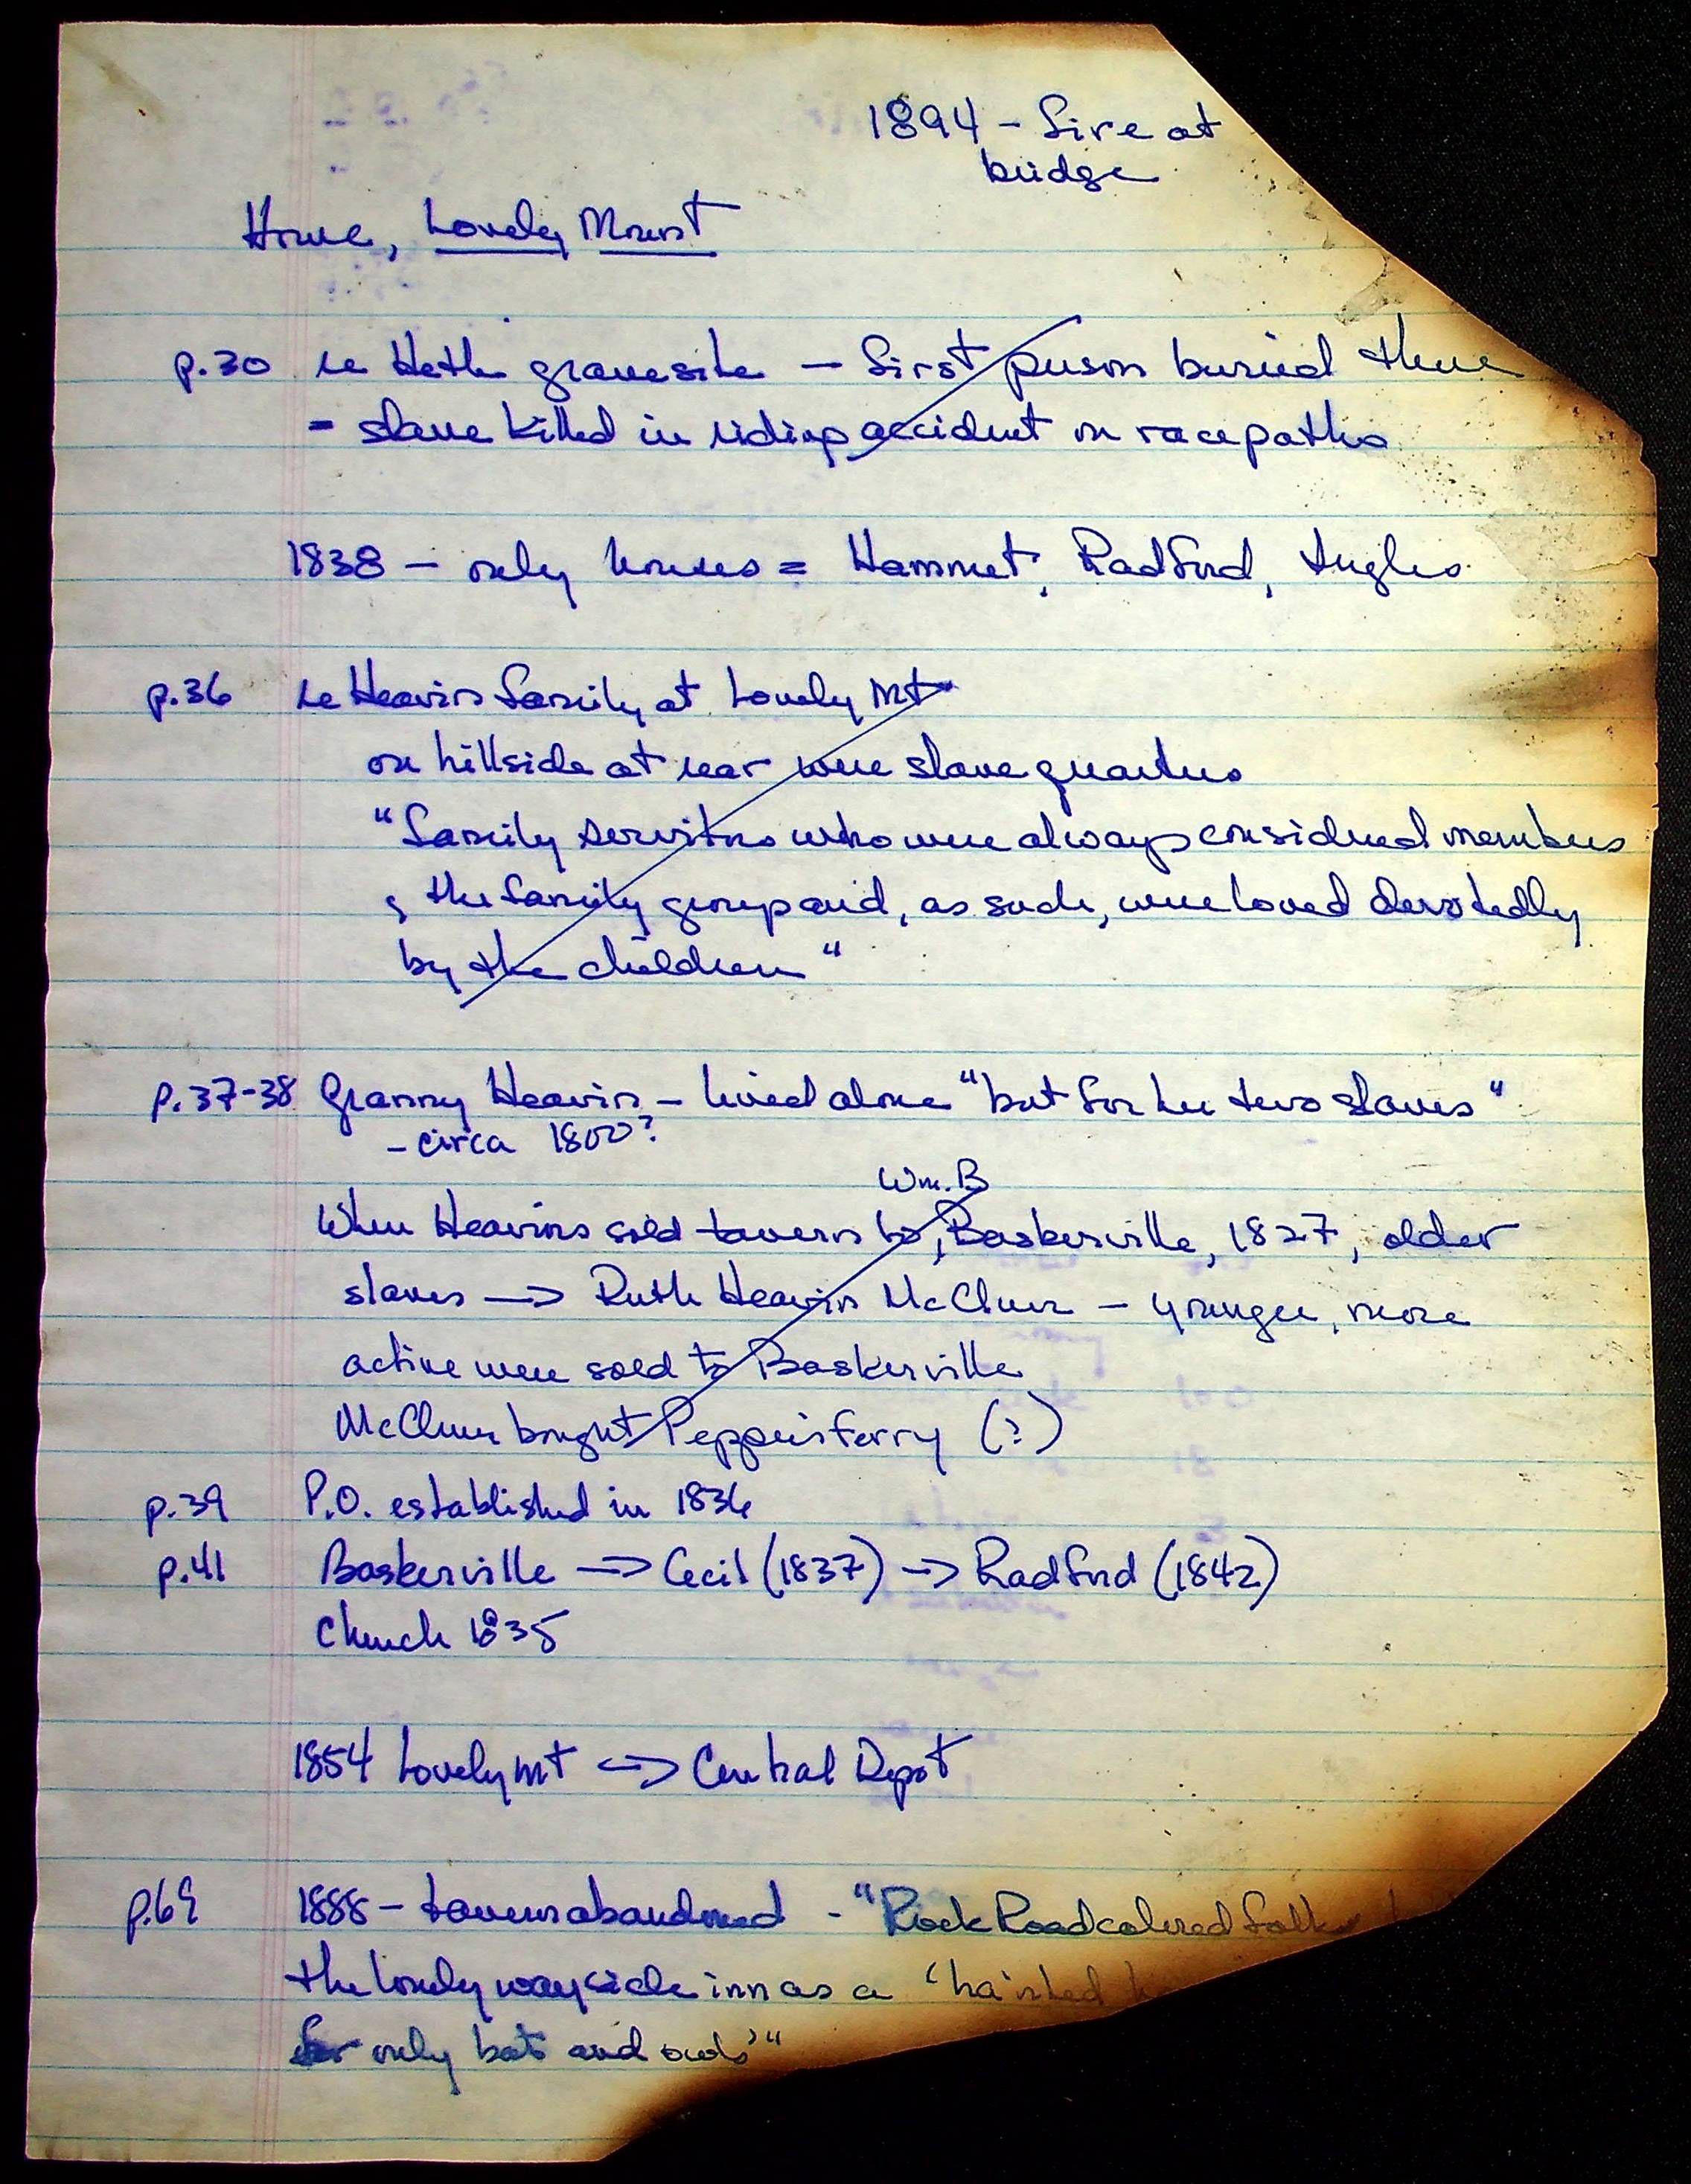 1894 - fire at
bridge
Howe, Lovely Mount
p.30 re Heth gravesite — first person buried there
= slave killed in riding accident on racepaths
1838 — only houses = Hammet, Radford, Ingles
p.36 re Heavin family at Lovely Mt
on hillside at rear were slave quarters
"family servitors who were always considered members
of the family group and, as such, were loved devotedly
by the children"
p.37-38 Granny Heavin - lived alone "but for her two slaves"
- circa 1800?
Wm. B
When Heavins sold tavern to, Baskerville, 1827, older
slaves → Ruth Heavin McClure - younger, more
active were sold to Baskerville
McClure bought Peppers Ferry (?)
p.39 P.O. established in 1836
p.41 Baskerville → Cecil (1837) → Radford (1842)
Church 1835
1854 Lovely Mt <-> Central Depot
p.69 1888 - tavern abandoned - "Rock Road colored folks
the lonely wayside inn as a 'ha'nted
for only bats and owls'"